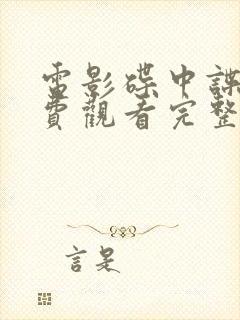 電影碟中諜
費觀看完整
言是